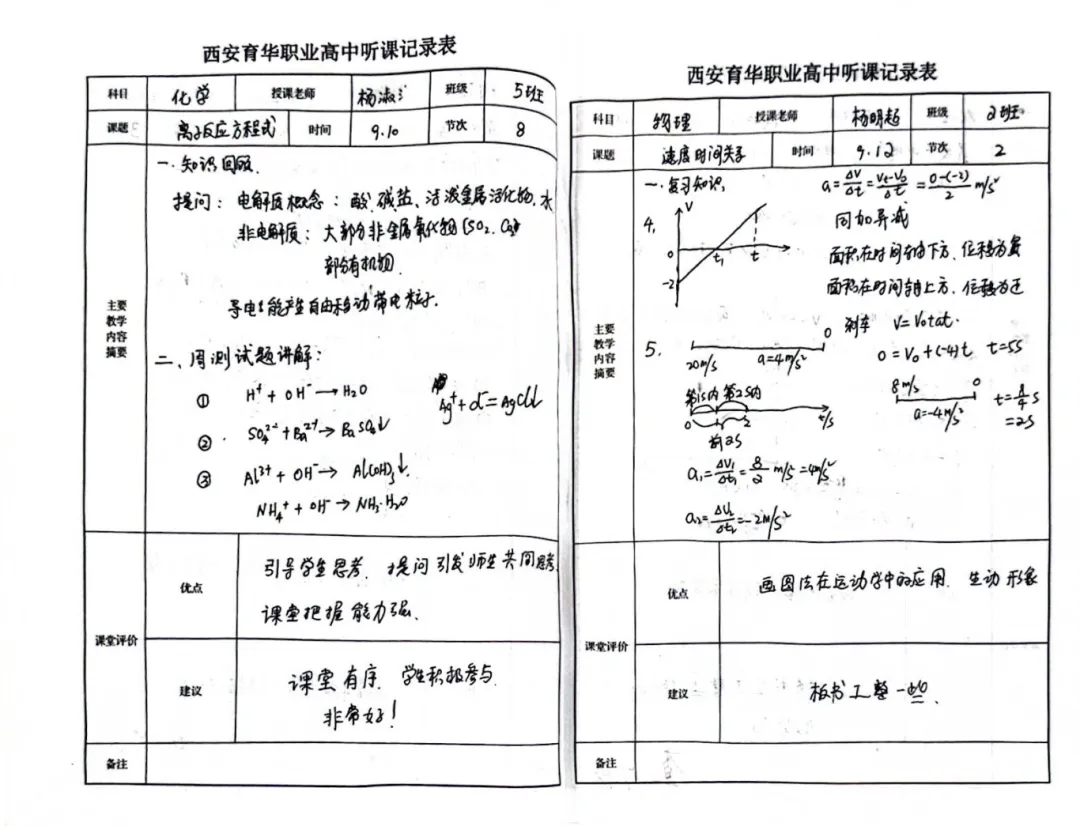 西安育华职业高中听课记录表
科目 化学 授课老师 杨淑 班级 5班
课题 离子反应方程式 时间 9.10 节次 8
主要教学内容摘要
一.知识回顾
提问：电解质概念：酸、碱盐、活泼金属氧化物、水
非电解质：大部分非金属氧化物（SO₂、CO₂）
部分有机物
导电：能产生自由移动带电粒子.
二、周测试题讲解：
① H⁺ + OH⁻ → H₂O
Ag⁺ + Cl⁻ = AgCl↓
② SO₄²⁻ + Ba²⁺ → BaSO₄↓
③ Al³⁺ + OH⁻ → Al(OH)₃↓
NH₄⁺ + OH⁻ → NH₃·H₂O
课堂评价
优点
引导学生思考. 提问引发师生共同思考
课堂把握能力强.
建议
课堂有序. 学生积极参与
非常好！
备注
西安育华职业高中听课记录表
科目 物理 授课老师 杨明超 班级 2班
课题 速度时间关系 时间 9.12 节次 2
主要教学内容摘要
一.复习知识, a=ΔV/Δt=(Vt-V0)/Δt=(0-(-2))/2 m/s²
4. V 0 t₁ t -2
同加异减
面积在时间轴下方、位移为负
面积在时间轴上方、位移为正
5. 20m/s a=4m/s² 0 刹车 V=V0+at.
0=V0+(-4)t t=5s
8m/s 0 a=-4m/s² t=8/4 s
=2s
第1s内 第2s内
0 1 2 t/s
前2s
a₁=ΔV₁/Δt₁=8/2 m/s²=4m/s²
a₂=ΔV₂/Δt₂=-2m/s²
课堂评价
优点
画图法在运动学中的应用. 生动形象
建议
板书工整一些.
备注